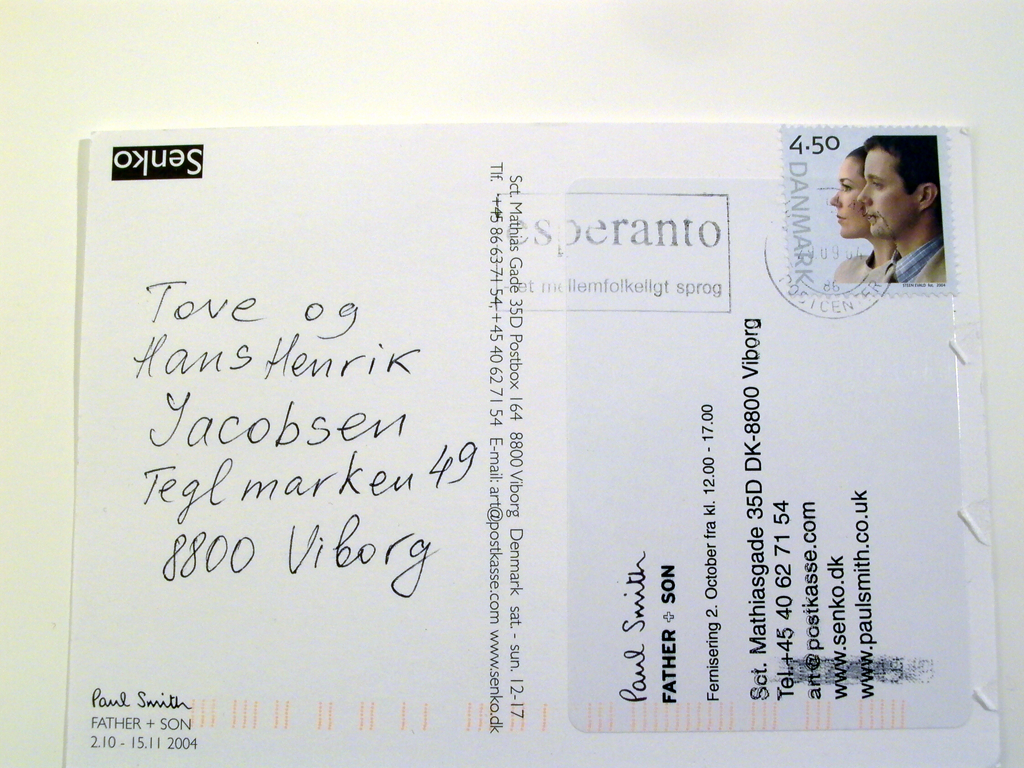 Senko
Tove og
Hans Henrik
Jacobsen
Teglmarken 49
8800 Viborg
Paul Smith
FATHER + SON
2.10 - 15.11 2004
Sct. Mathias Gade 35D Postbox 164 8800 Viborg Denmark sat. - sun. 12-17
Tlf. +45 86 63 71 54, +45 40 62 71 54 E-mail: art@postkasse.com www.senko.dk
esperanto
det mellemfolkeligt sprog
4.50
DANMARK
09 04
86
POSTCENTER
Paul Smith
FATHER + SON
Fernisering 2. October fra kl. 12.00 - 17.00
Sct. Mathiasgade 35D DK-8800 Viborg
Tel.+45 40 62 71 54
art@postkasse.com
www.senko.dk
www.paulsmith.co.uk